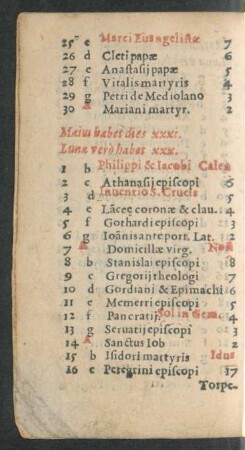 25 c Marci Euangelistæ 7
26 d Cleti papæ 6
27 e Anastasij papæ 5
28 f Vitalis martyris 4
29 g Petri de Mediolano 3
30 A Mariani martyr. 2
Maius habet dies xxxi.
Luna verò habet xxx.
1 b Philippi & Iacobi Calen
2 c Athanasij episcopi 6
3 d Inuentio S. Crucis 5
4 e Lãceę coronæ & clau. 4
5 f Gothardi episcopi 3
6 g Ioãnis ante port. Lat. 2
7 A Domicillæ virg. Non
8 b Stanislai episcopi 8
9 c Gregorij theologi 7
10 d Gordiani & Epimachi 6
11 e Memerri episcopi 5
12 f Pancratij. Sol in Gem. 4
13 g Seruatij episcopi 3
14 A Sanctus Iob 2
15 b Isidori martyris Idus
16 c Peregrini episcopi 17
Torpe-